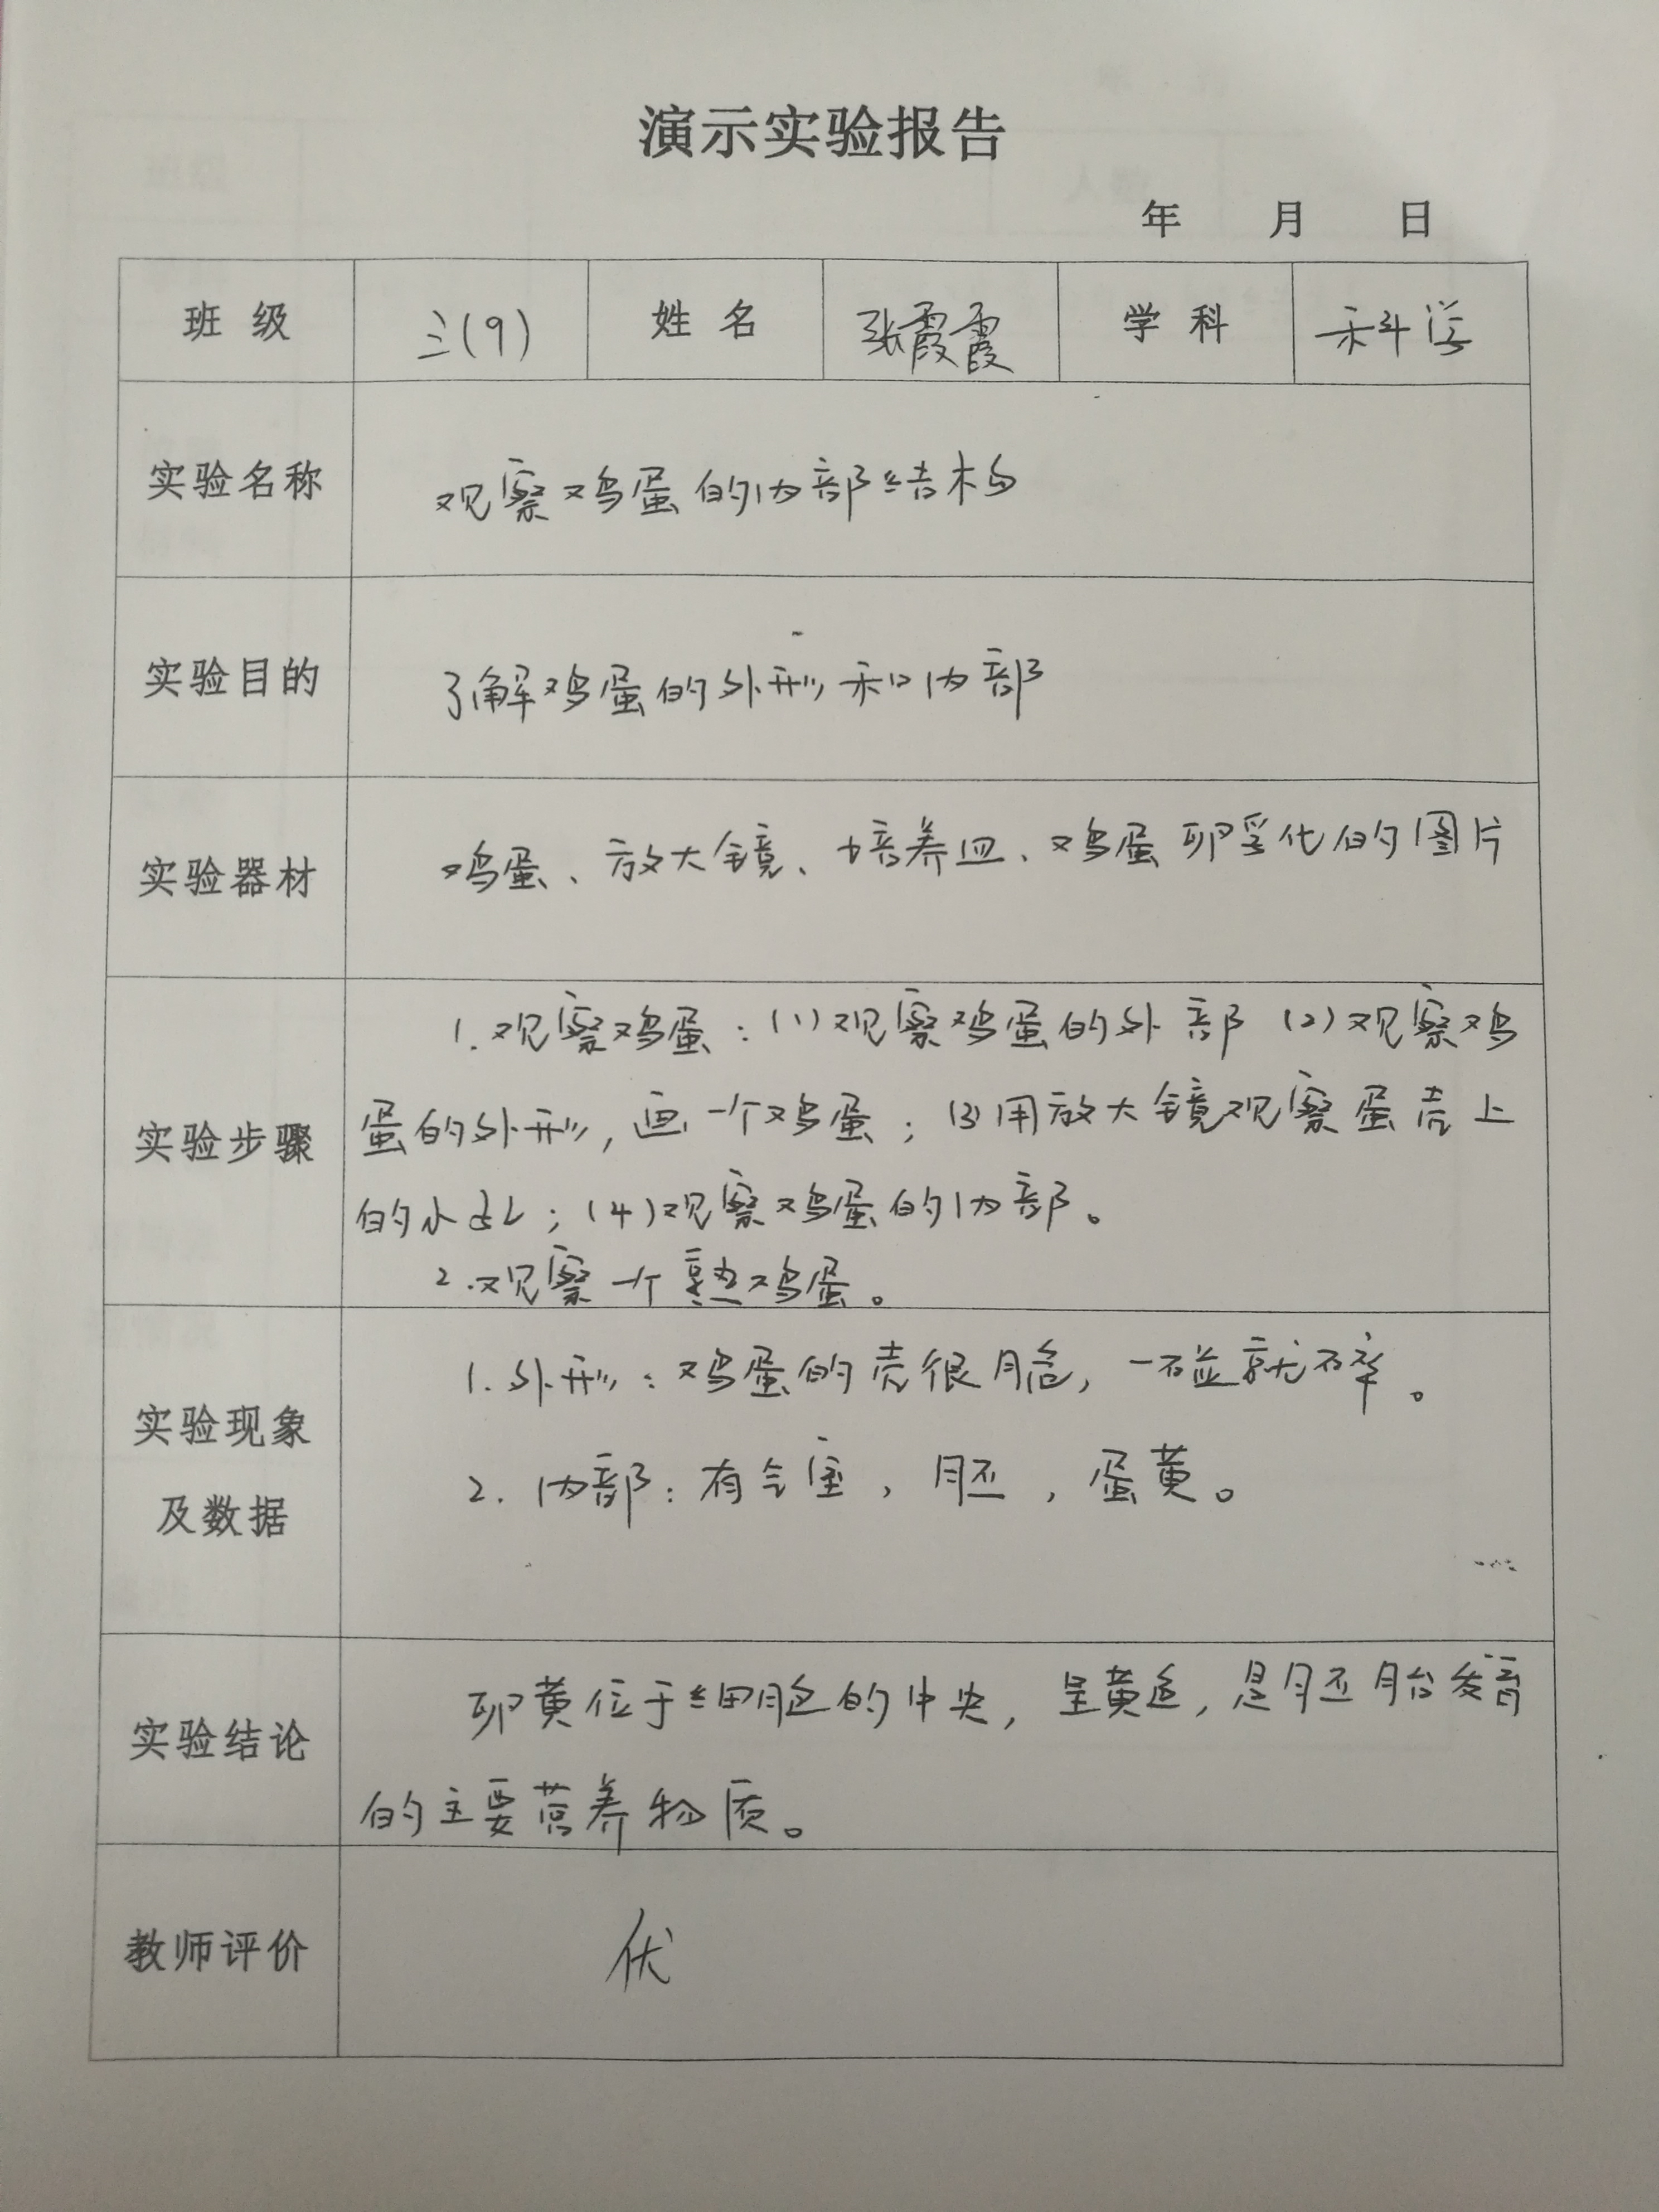 演示实验报告
年 月 日
班级 三(9) 姓名 张霞霞 学科 科学
实验名称 观察鸡蛋的内部结构
实验目的 了解鸡蛋的外形和内部
实验器材 鸡蛋、放大镜、培养皿、鸡蛋卵孚化的图片
实验步骤
1.观察鸡蛋:(1)观察鸡蛋的外部 (2)观察鸡
蛋的外形,画一个鸡蛋;(3)用放大镜观察蛋壳上
的小点;(4)观察鸡蛋的内部。
2.观察一个熟鸡蛋。
实验现象
及数据
1.外形:鸡蛋的壳很脆,一碰就碎。
2.内部:有气室,胚,蛋黄。
实验结论
卵黄位于细胞的中央,呈黄色,是胚胎发育
的主要营养物质。
教师评价 优